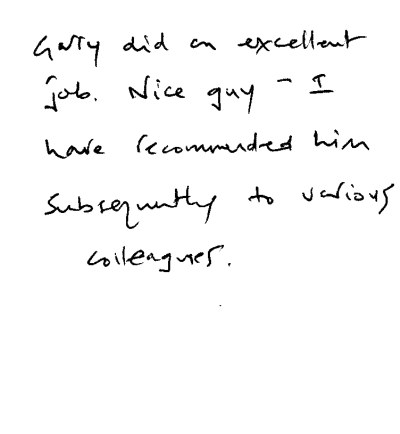 Garry did an excellent
job. Nice guy - I
have recommended him
subsequently to various
colleagues.